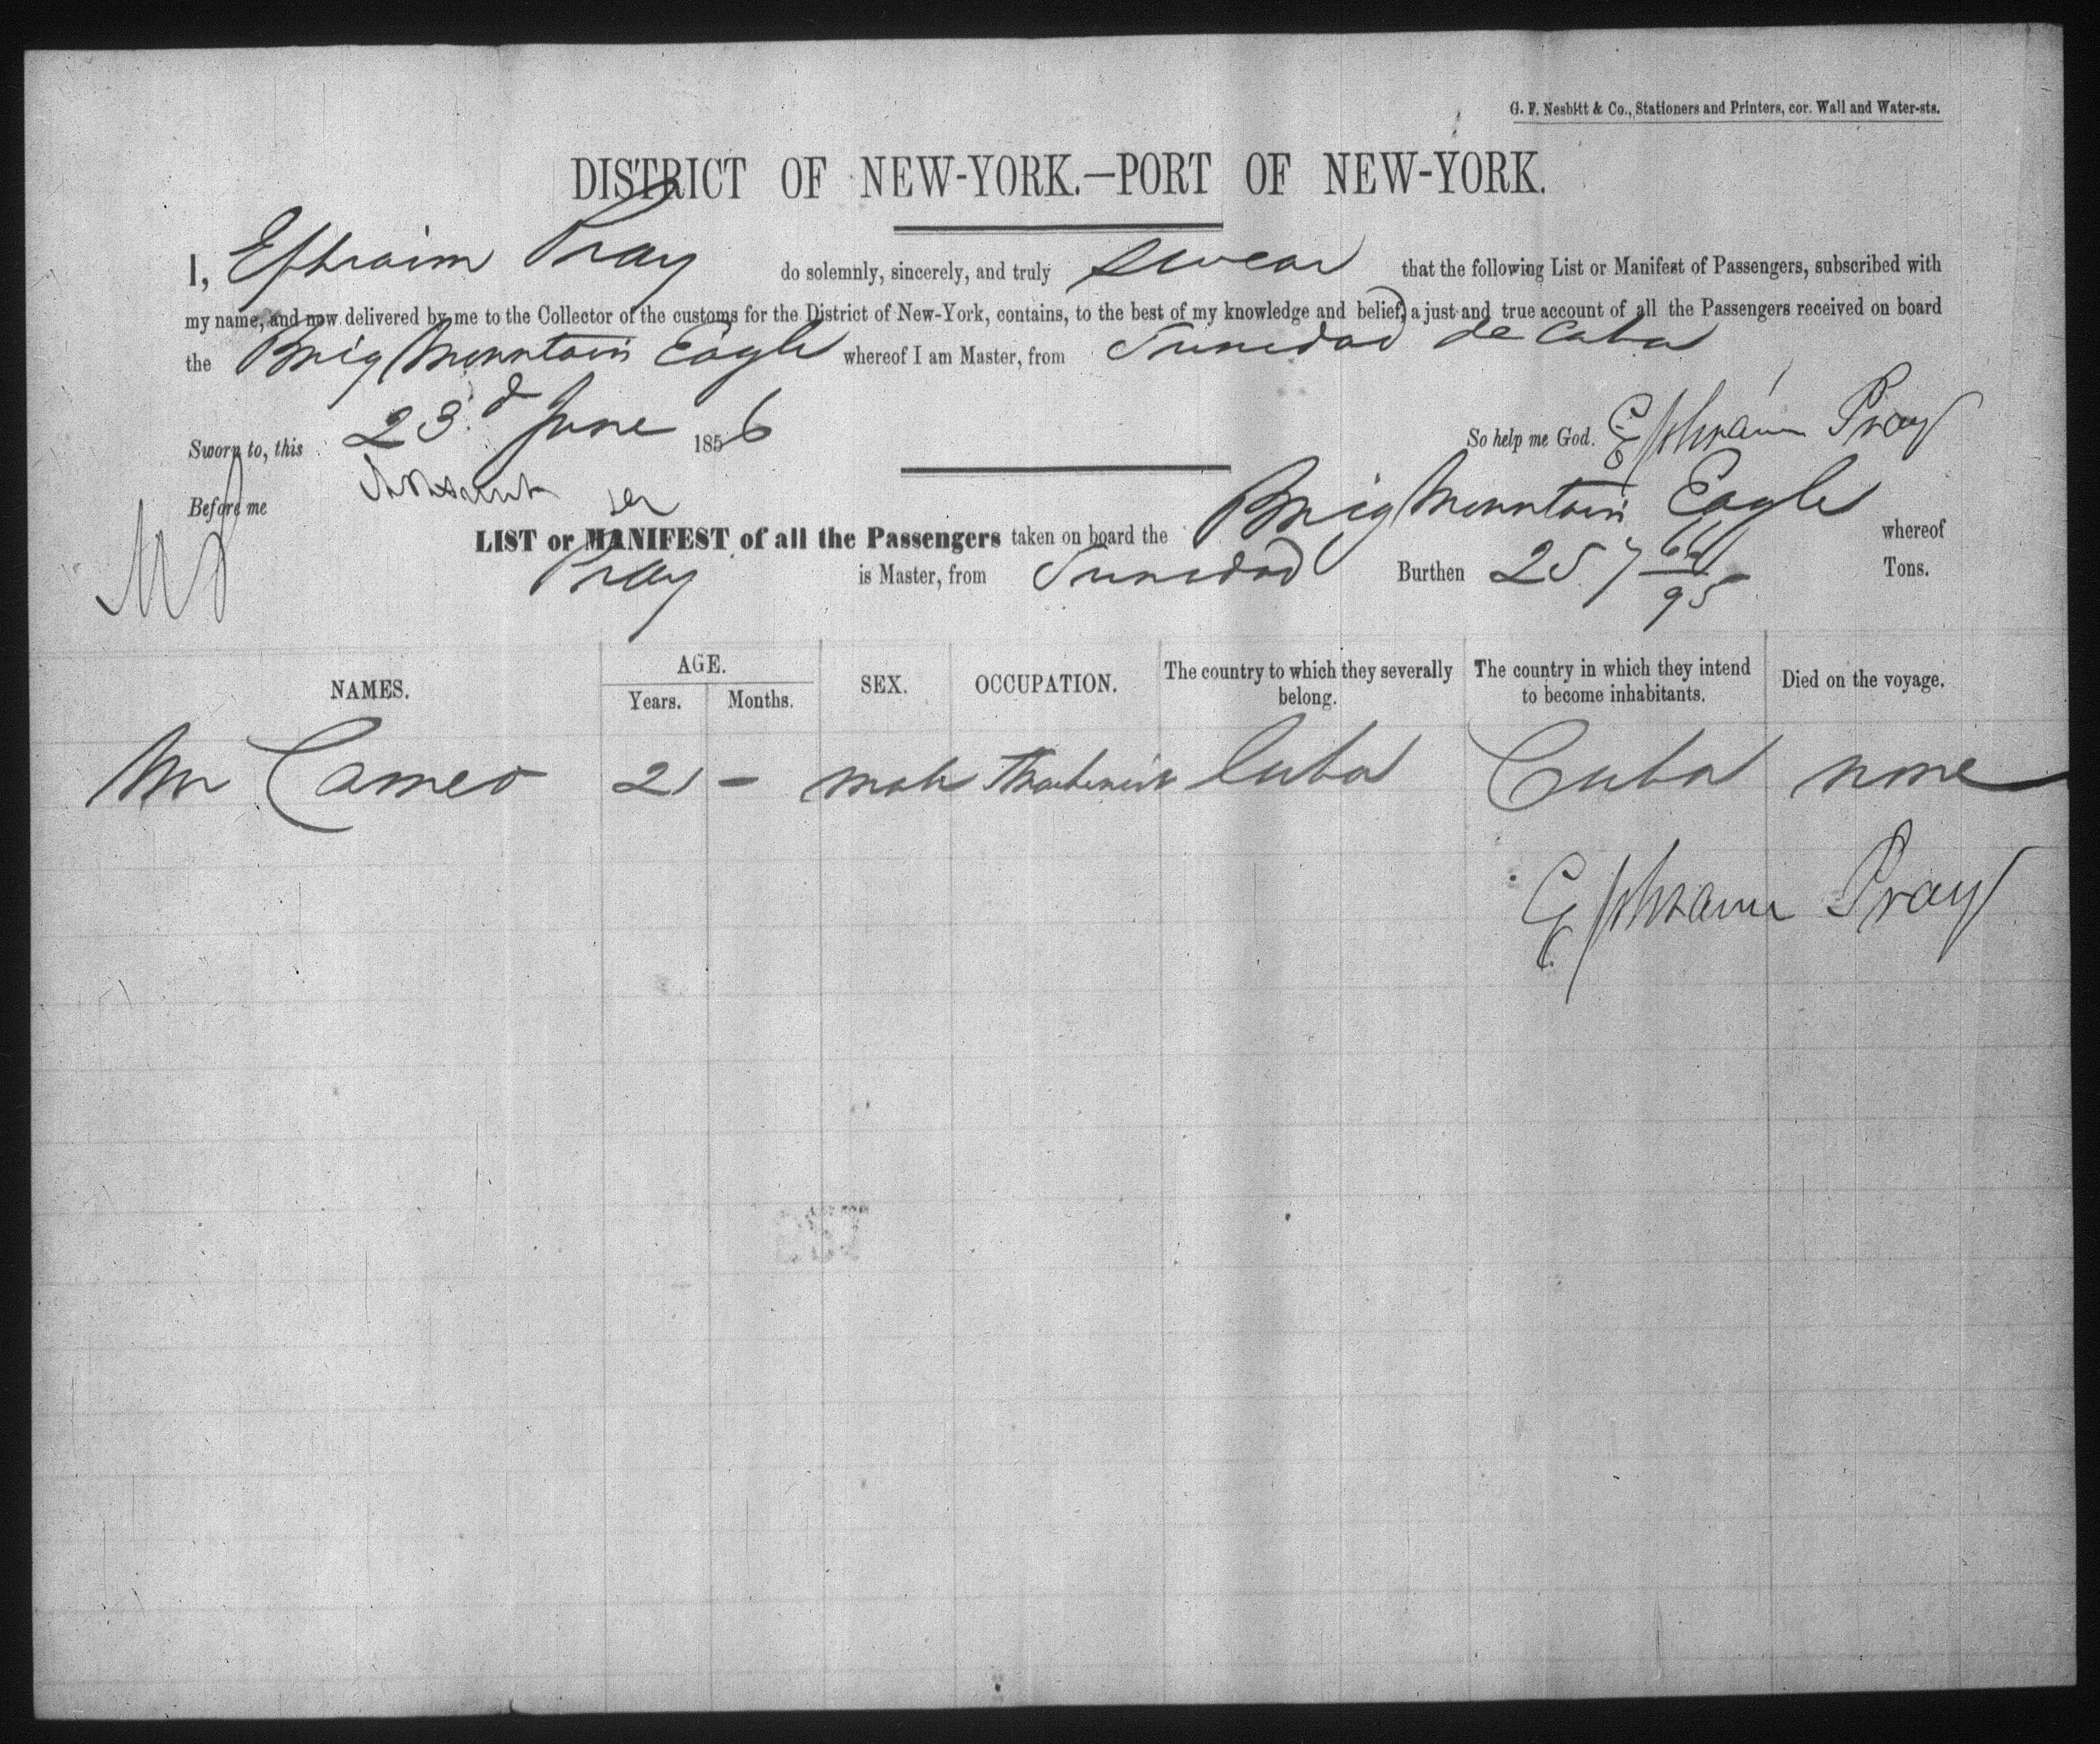 G. F. Nesbitt & Co., Stationers and Printers, cor. Wall and Water-sts.
DISTRICT OF NEW-YORK.—PORT OF NEW-YORK.
I, Ephraim Pray do solemnly, sincerely, and truly swear that the following List or Manifest of Passengers, subscribed with
my name, and now delivered by me to the Collector of the customs for the District of New-York, contains, to the best of my knowledge and belief, a just and true account of all the Passengers received on board
the Brig Mountain Eagle whereof I am Master, from Trinidad de Cuba
Sworn to, this 23d June 1856 So help me God. Ephraim Pray
Before me
LIST or MANIFEST of all the Passengers taken on board the Brig Mountain Eagle whereof
Pray is Master, from Trinidad Burthen 257 60/95 Tons.
NAMES. AGE. Years. Months. SEX. OCCUPATION. The country to which they severally belong. The country in which they intend to become inhabitants. Died on the voyage.
Mr Cameo 21 - male Machinist Cuba Cuba none
Ephraim Pray